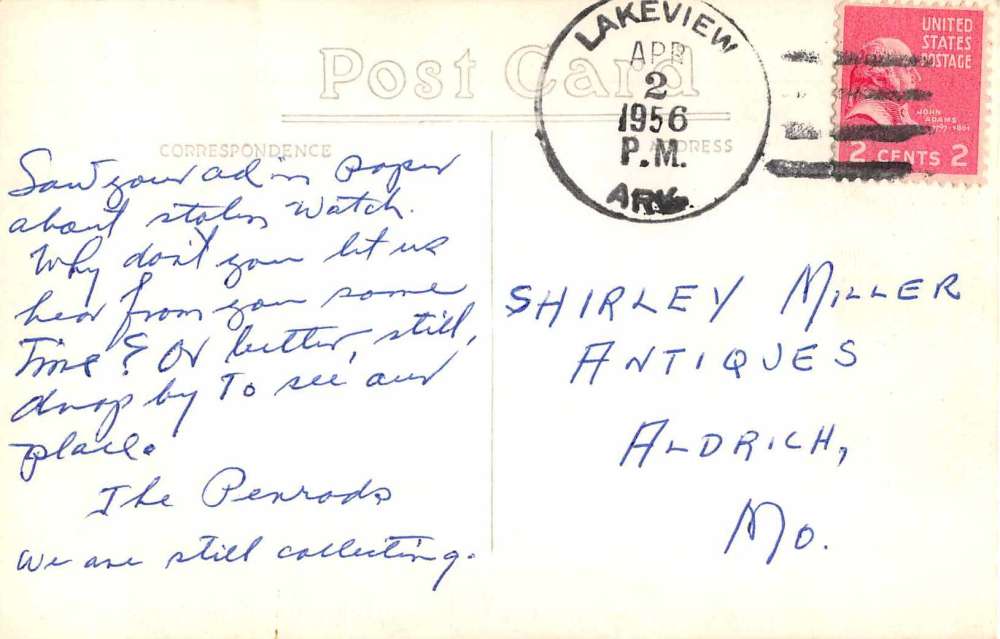 Post Card
CORRESPONDENCE
ADDRESS
LAKEVIEW
APR
2
1956
P.M.
ARK.
UNITED
STATES
POSTAGE
JOHN
ADAMS
1797-1801
2 CENTS 2
Saw your ad in paper
about stolen watch.
Why don't you let us
hear from you some
time? Or better, still,
drop by to see our
place.
The Penrods
We are still collecting.
SHIRLEY MILLER
ANTIQUES
ALDRICH,
MO.